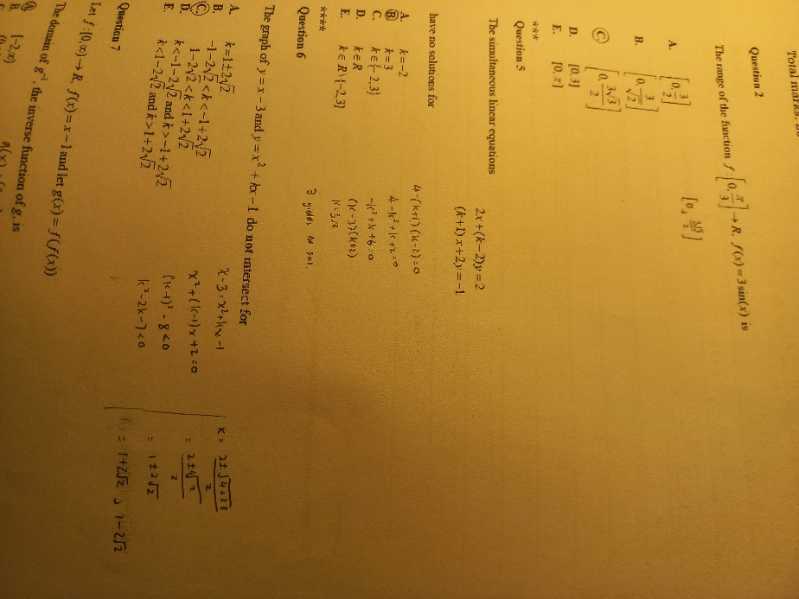 Total marks:
Question 2
The range of the function f [0, π/3] → R, f(x) = 3 sin(x) is
A. [0, 3/2]
B. [0, 3/√2]
C. [0, 3√3/2]
D. [0, 3]
E. [0, π]
***
Question 5
The simultaneous linear equations
2x + (k − 2)y = 2
(k + 1)x + 2y = −1
have no solutions for
A. k = −2
B. k = 3
C. k ∈ {−2, 3}
D. k ∈ R
E. k ∈ R\{−2, 3}
4 - (k+1)(k-2) = 0
4 - k² + k + 2 = 0
-k² + k + 6 = 0
(k-3)(k+2)
****
Question 6
The graph of y = x − 3 and y = x² + kx − 1 do not intersect for
A. k = 1 ± 2√2
B. −1 − 2√2 < k < −1 + 2√2
C. 1 − 2√2 < k < 1 + 2√2
D. k < −1 − 2√2 and k > −1 + 2√2
E. k < 1 − 2√2 and k > 1 + 2√2
x - 3 = x² + kx - 1
x² + (k-1)x + 2 = 0
(k-1)² - 8 < 0
k² - 2k - 7 < 0
= 1 ± 2√2
= 1+2√2, 1-2√2
Question 7
Let f : [0, ∞) → R, f(x) = x − 1 and let g(x) = f(f(x))
The domain of g⁻¹, the inverse function of g, is
[−2, ∞)